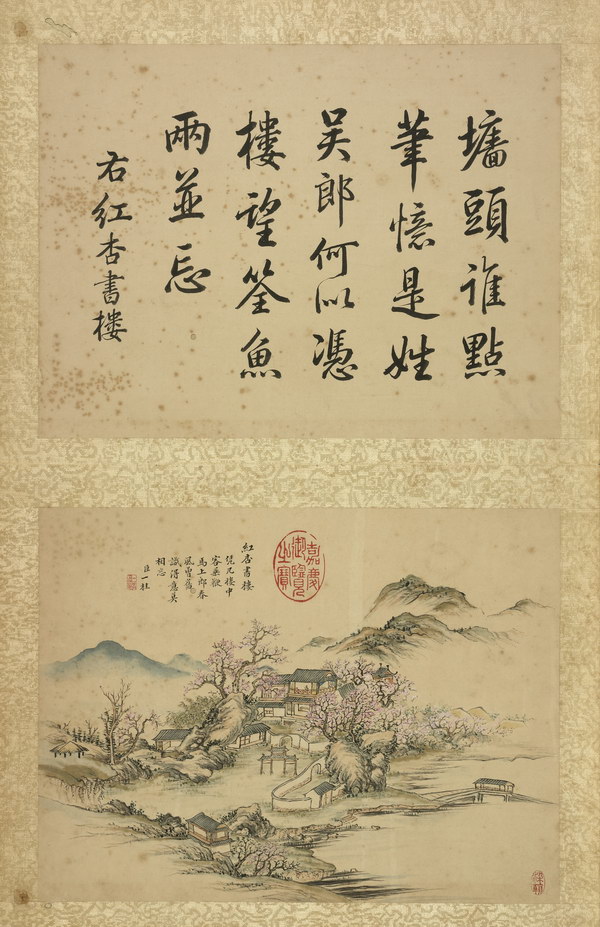 墻頭誰點
筆憶是姓
吴郎何以憑
樓望筌魚
兩並忘
右紅杏書樓
紅杏書樓
凭几樓中
客垂鞭
馬上郎春
風曾舊
識得意莫
相忘
臣一桂
嘉慶
御覽
之寶